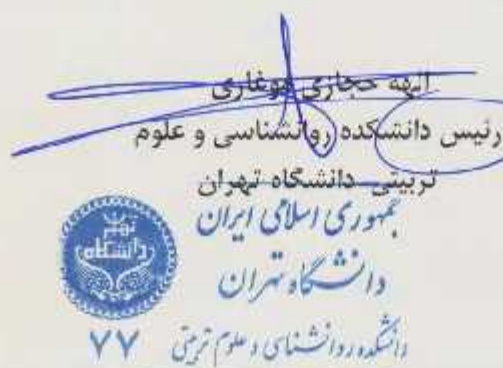 الهه حجازی موغاری
رئیس دانشکده روانشناسی و علوم
تربیتی دانشگاه تهران
جمهوری اسلامی ایران
دانشگاه تهران
دانشکده روانشناسی و علوم تربیتی ۷۷